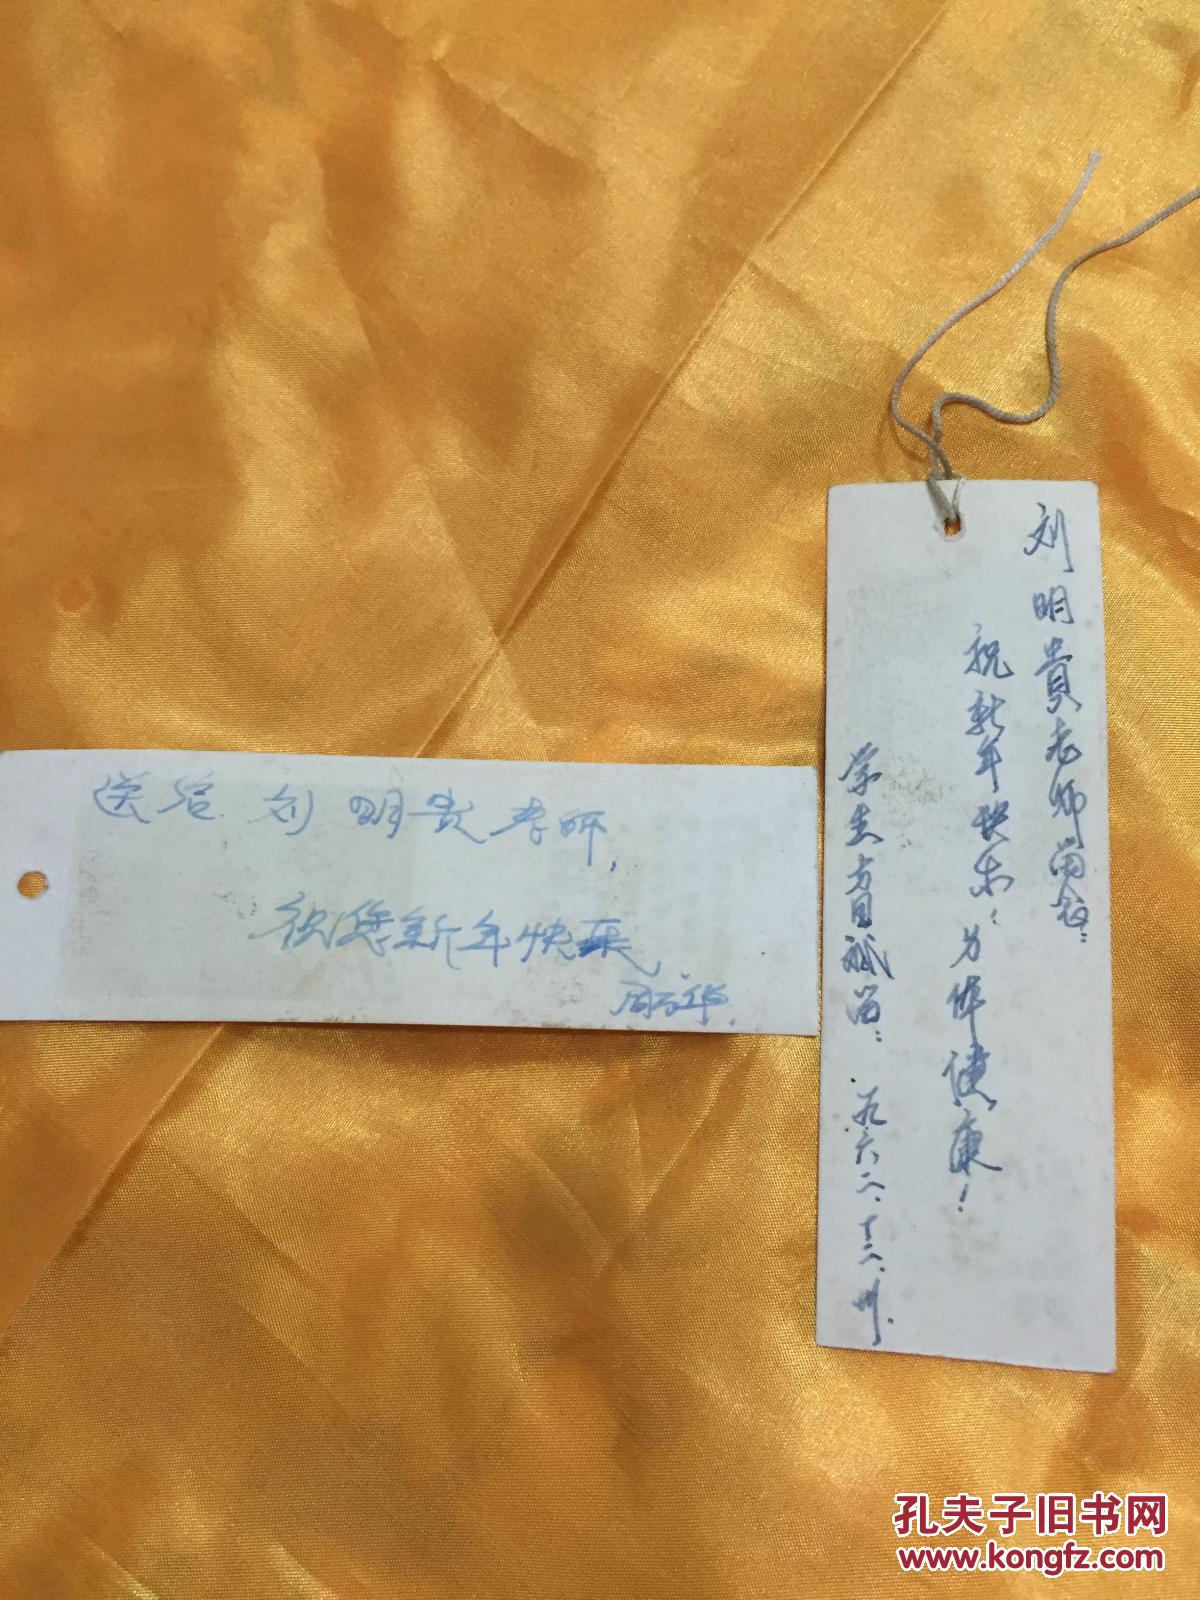 送给刘明贵老师,
祝您新年快乐
周万华.
刘明貴老师留念:
祝新年快乐: 身体健康!
学生方目诚留: 一九六二.十二.卅.
孔夫子旧书网
www.kongfz.com